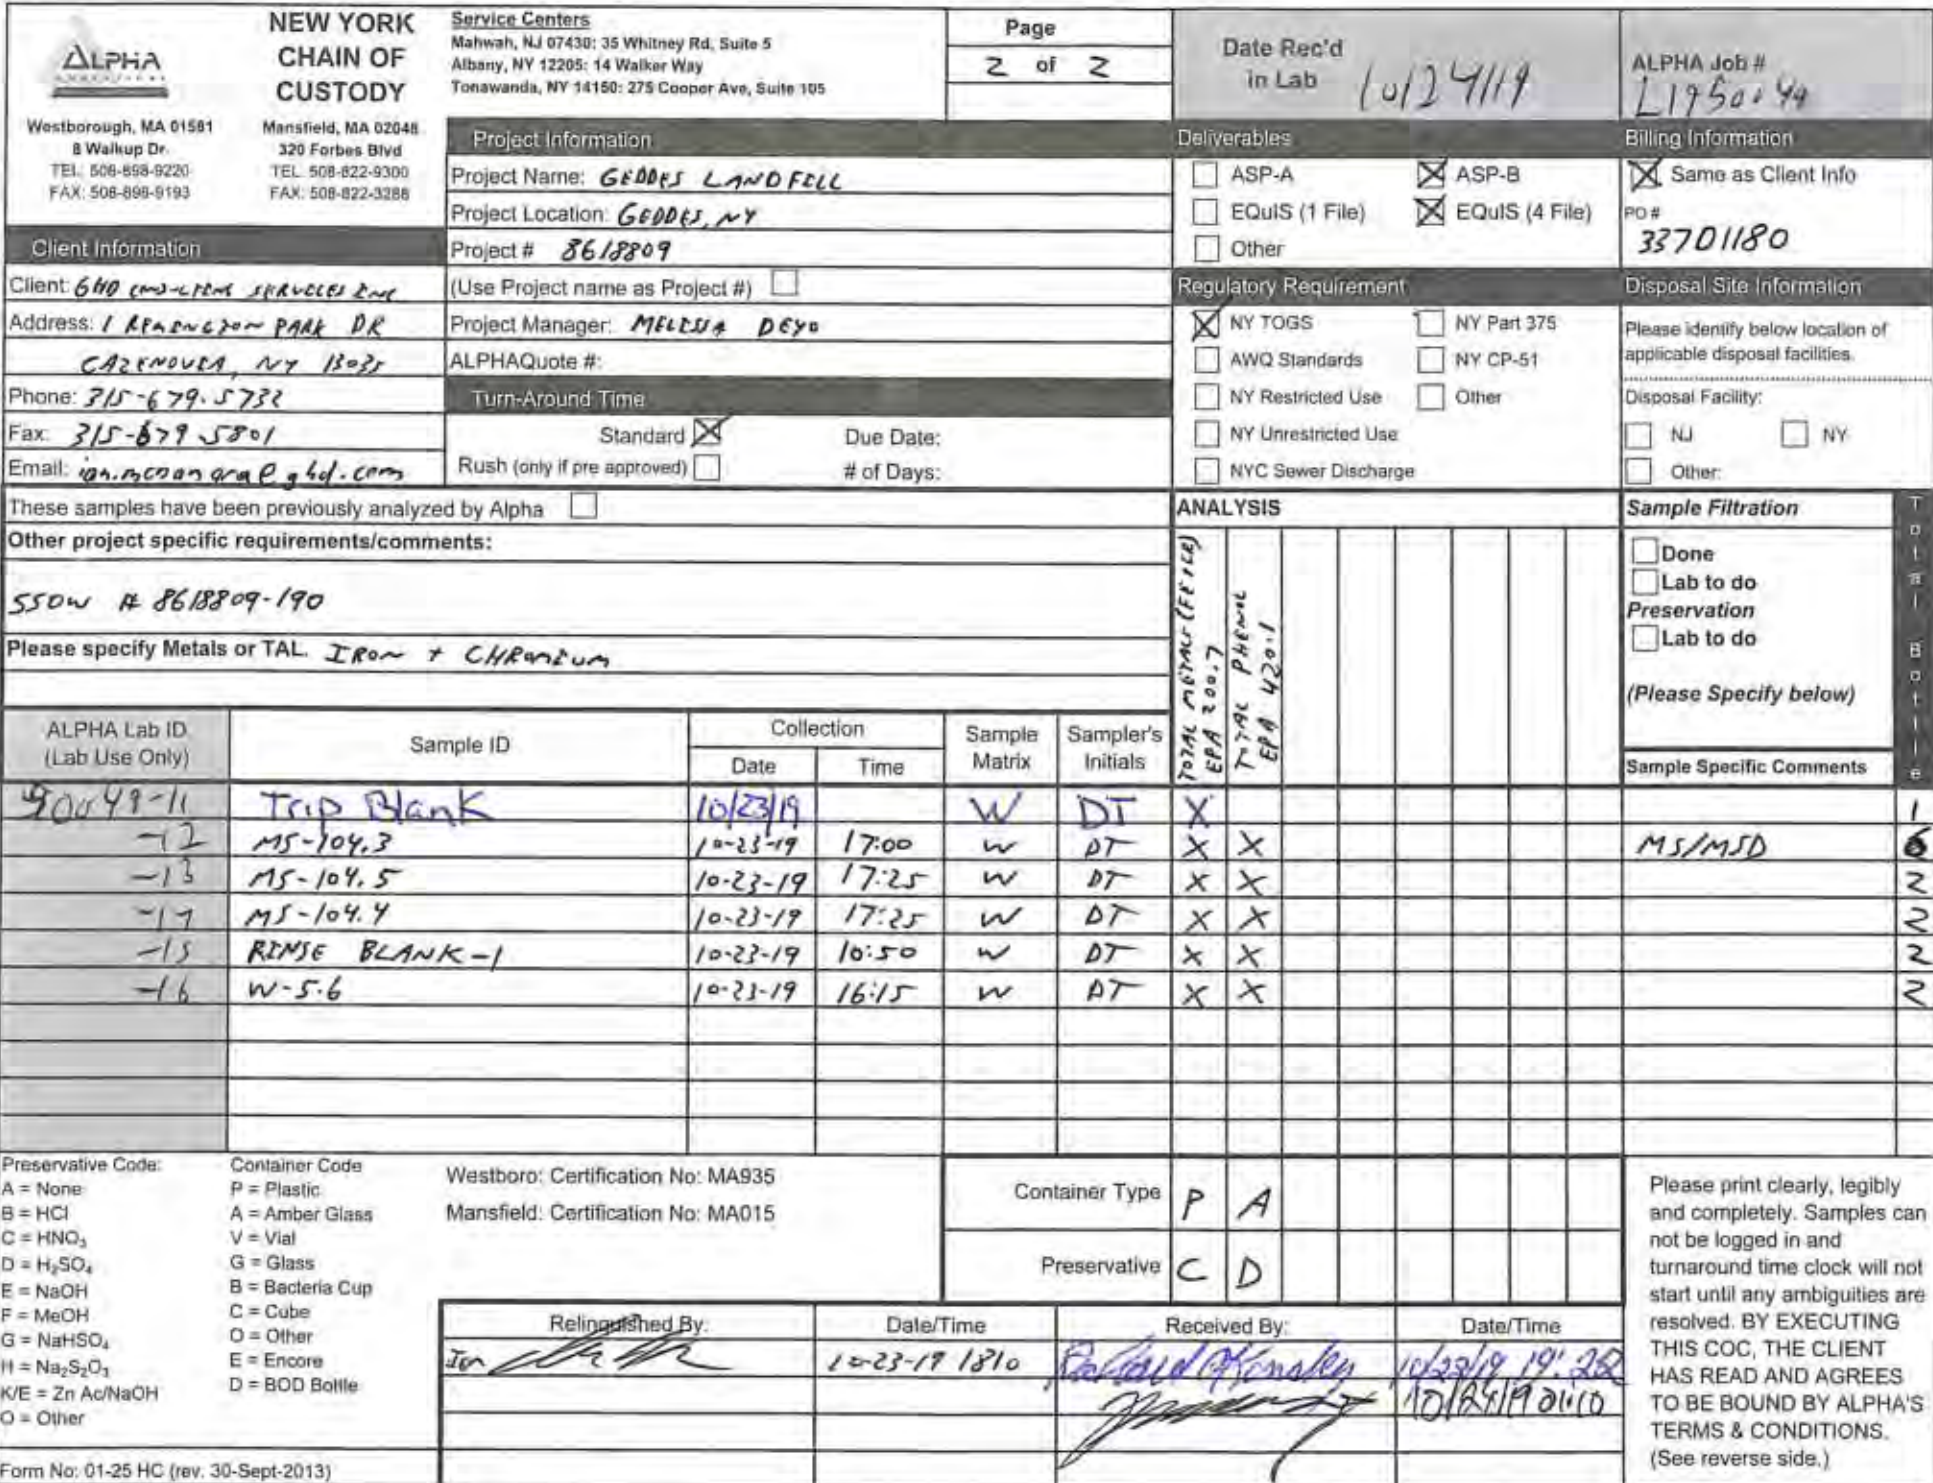 ALPHA
ANALYTICAL
NEW YORK
CHAIN OF
CUSTODY
Westborough, MA 01581
8 Walkup Dr.
TEL: 508-898-9220
FAX: 508-898-9193
Mansfield, MA 02048
320 Forbes Blvd
TEL: 508-822-9300
FAX: 508-822-3288
Service Centers
Mahwah, NJ 07430: 35 Whitney Rd, Suite 5
Albany, NY 12205: 14 Walker Way
Tonawanda, NY 14150: 275 Cooper Ave, Suite 105
Page
2 of 2
Date Rec'd
in Lab 10/24/19
ALPHA Job #
L1950049
Project Information
Project Name: GEDDES LANDFILL
Project Location: GEDDES, NY
Project # 8618809
(Use Project name as Project #)
Project Manager: MELISSA DEYO
ALPHAQuote #:
Turn-Around Time
Standard X Due Date:
Rush (only if pre approved) # of Days:
Client Information
Client: GHD SERVICES INC
Address: 1 REMINGTON PARK DR
CAZENOVIA, NY 13035
Phone: 315-679-5732
Fax: 315-679-5801
Email: ian.mcnamara@ghd.com
Deliverables
ASP-A X ASP-B
EQuIS (1 File) X EQuIS (4 File)
Other
Billing Information
X Same as Client Info
PO #
33701180
Regulatory Requirement
X NY TOGS NY Part 375
AWQ Standards NY CP-51
NY Restricted Use Other
NY Unrestricted Use
NYC Sewer Discharge
Disposal Site Information
Please identify below location of
applicable disposal facilities.
Disposal Facility:
NJ NY
Other:
These samples have been previously analyzed by Alpha
Other project specific requirements/comments:
SSOW # 8618809-190
Please specify Metals or TAL. IRON + CHROMIUM
ANALYSIS
TOTAL METALS (FE & CR)
EPA 200.7
TOTAL PHENOL
EPA 420.1
Sample Filtration
Done
Lab to do
Preservation
Lab to do
(Please Specify below)
Total Bottle
ALPHA Lab ID
(Lab Use Only)
Sample ID
Collection
Date Time
Sample
Matrix
Sampler's
Initials
Sample Specific Comments
50049-11 Trip Blank 10/23/19 W DT X 1
-12 MS-104.3 10-23-19 17:00 W DT X X MS/MSD 6
-13 MS-104.5 10-23-19 17:25 W DT X X 2
-14 MS-104.4 10-23-19 17:25 W DT X X 2
-15 RINSE BLANK-1 10-23-19 10:50 W DT X X 2
-16 W-5.6 10-23-19 16:15 W DT X X 2
Preservative Code:
A = None
B = HCl
C = HNO₃
D = H₂SO₄
E = NaOH
F = MeOH
G = NaHSO₄
H = Na₂S₂O₃
K/E = Zn Ac/NaOH
O = Other
Container Code
P = Plastic
A = Amber Glass
V = Vial
G = Glass
B = Bacteria Cup
C = Cube
O = Other
E = Encore
D = BOD Bottle
Westboro: Certification No: MA935
Mansfield: Certification No: MA015
Container Type P A
Preservative C D
Relinquished By: Date/Time Received By: Date/Time
Ian 10-23-19 1810 10/23/19
10/24/19 01:10
Please print clearly, legibly
and completely. Samples can
not be logged in and
turnaround time clock will not
start until any ambiguities are
resolved. BY EXECUTING
THIS COC, THE CLIENT
HAS READ AND AGREES
TO BE BOUND BY ALPHA'S
TERMS & CONDITIONS.
(See reverse side.)
Form No: 01-25 HC (rev. 30-Sept-2013)